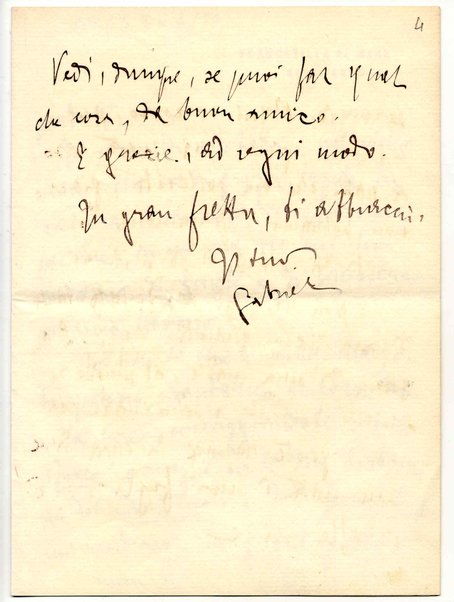 4
Vedi, dunque, se puoi far qual
che cosa, da buon amico.
E grazie, ad ogni modo.
In gran fretta, ti abbraccio.
Il tuo
Gabriele